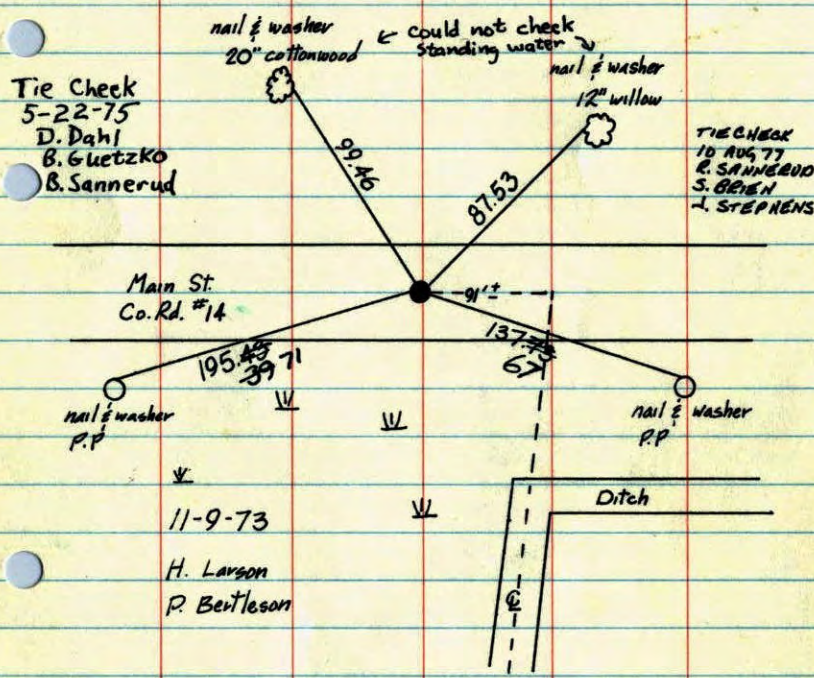 nail & washer
20" cottonwood
← could not check
standing water
nail & washer
12" willow
Tie Check
5-22-75
D. Dahl
B. Guetzko
B. Sannerud
TIE CHECK
10 AUG 77
R. SANNERUD
S. BRIEN
J. STEPHENS
99.46
87.53
Main St.
Co. Rd. #14
91'±
195.43
39 71
137.73
67
nail & washer
P.P
nail & washer
P.P
11-9-73
H. Larson
P. Bertleson
Ditch
℄